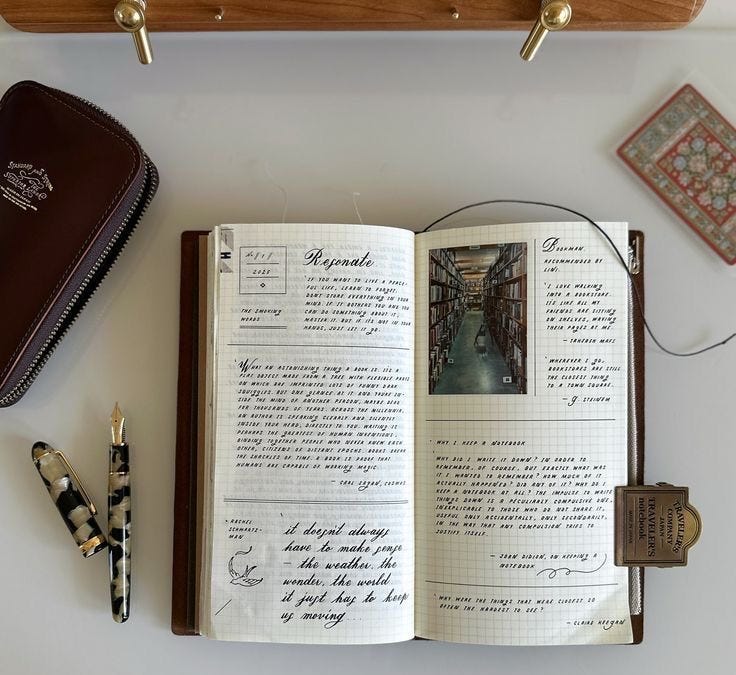 STANDARD AND STRONG
THE
SUPERIOR LABOR
No 818
2025
Resonate
THE SMOKING
WORDS
'IF YOU WANT TO LIVE A PEACE-
FUL LIFE, LEARN TO FORGET.
DONT STORE EVERYTHING IN YOUR
MIND. IF IT BOTHERS YOU AND YOU
CAN DO SOMETHING ABOUT IT,
MASTER IT. BUT IF ITS NOT IN YOUR
HANDS, JUST LET IT GO.
'WHAT AN ASTONISHING THING A BOOK IS. ITS A
FLAT OBJECT MADE FROM A TREE WITH FLEXIBLE PARTS
ON WHICH ARE IMPRINTED LOTS OF FUNNY DARK
SQUIGGLES. BUT ONE GLANCE AT IT AND YOURE IN-
SIDE THE MIND OF ANOTHER PERSON, MAYBE DEAD
FOR THOUSANDS OF YEARS. ACROSS THE MILLENNIA,
AN AUTHOR IS SPEAKING CLEARLY AND SILENTLY
INSIDE YOUR HEAD, DIRECTLY TO YOU. WRITING IS
PERHAPS THE GREATEST OF HUMAN INVENTIONS,
BINDING TOGETHER PEOPLE WHO NEVER KNEW EACH
OTHER, CITIZENS OF DISTANT EPOCHS. BOOKS BREAK
THE SHACKLES OF TIME. A BOOK IS PROOF THAT
HUMANS ARE CAPABLE OF WORKING MAGIC.
— CARL SAGAN, COSMOS
- RACHEL
SCHWARTZ-
MAN
'it doesn't always
have to make sense
— the weather. the
wonder. the world
it just has to keep
us moving...
BOOKMAN.
RECOMMENDED BY
LIWI.
'I LOVE WALKING
INTO A BOOKSTORE.
ITS LIKE ALL MY
FRIENDS ARE SITTING
ON SHELVES, WAVING
THEIR PAGES AT ME.
— TAHEREH MAFI
'WHEREVER I GO,
BOOKSTORES ARE STILL
THE CLOSEST THING
TO A TOWN SQUARE.
— G. STEINEM
' WHY I KEEP A NOTEBOOK
WHY DID I WRITE IT DOWN? IN ORDER TO
REMEMBER, OF COURSE, BUT EXACTLY WHAT WAS
IT I WANTED TO REMEMBER? HOW MUCH OF IT
ACTUALLY HAPPENED? DID ANY OF IT? WHY DO I
KEEP A NOTEBOOK AT ALL? THE IMPULSE TO WRITE
THINGS DOWN IS A PECULIARLY COMPULSIVE ONE,
INEXPLICABLE TO THOSE WHO DO NOT SHARE IT,
USEFUL ONLY ACCIDENTALLY, ONLY SECONDARILY,
IN THE WAY THAT ANY COMPULSION TRIES TO
JUSTIFY ITSELF.
— JOAN DIDION, ON KEEPING A
NOTEBOOK
'WHY WERE THE THINGS THAT WERE CLOSEST SO
OFTEN THE HARDEST TO SEE?
— CLAIRE KEEGAN
TRAVELER'S
COMPANY
JAPAN
TRAVELER'S
notebook
MADE IN JAPAN